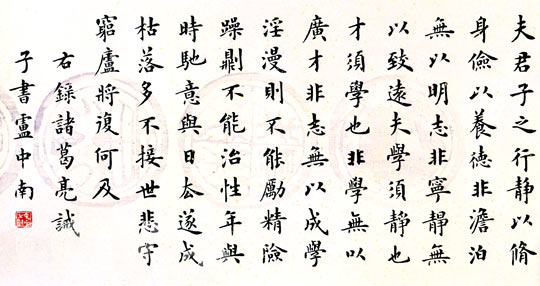 夫君子之行静以脩
身儉以養德非澹泊
無以明志非寧静無
以致遠夫學須静也
才須學也非學無以
廣才非志無以成學
淫漫則不能勵精險
躁則不能治性年與
時馳意與日去遂成
枯落多不接世悲守
窮廬將復何及
右錄諸葛亮誡
子書盧中南